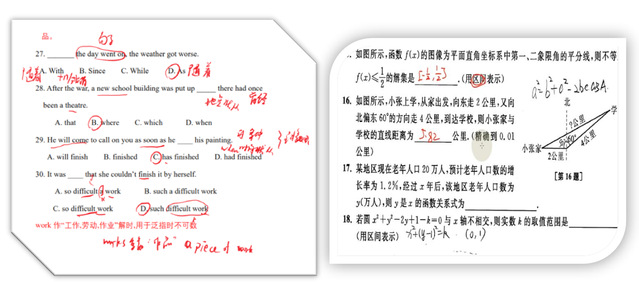 品。
句子
27. ______ the day went on, the weather got worse.
A. With B. Since C. While D. As 随着
28. After the war, a new school building was put up ____ there had once
been a theatre.
A. that B. where C. which D. when
29. He will come to call on you as soon as he ____ his painting.
A. will finish B. finished C. has finished D. had finished
30. It was ____ that she couldn't finish it by herself.
A. so difficult a work B. such a difficult work
C. so difficult work D. such difficult work
work 作“工作,劳动,作业”解时,用于泛指时不可数
a piece of work
. 如图所示,函数 f(x)的图像为平面直角坐标系中第一、二象限角的平分线,则不等
f(x)≤1/2的解集是[-1/2,1/2].(用区间表示)
a²=b²+c²-2bccosA
16. 如图所示,小张上学,从家出发,向东走2公里,又向
北偏东60°的方向走4公里,到达学校,则小张家与
学校的直线距离为 5.82 公里.(精确到0.01
公里)
北
学
4公里
60°
小张家
2公里
【第16题】
17. 某地区现在老年人口20万人,预计老年人口数的增
长率为1.2%,经过 x 年后,该地区老年人口数为
y(万人),则 y 是 x 的函数关系式为
18. 若圆 x²+y²-2y+1-k=0与 x 轴不相交,则实数 k 的取值范围是
(用区间表示) x²+(y-1)²=k (0,1)